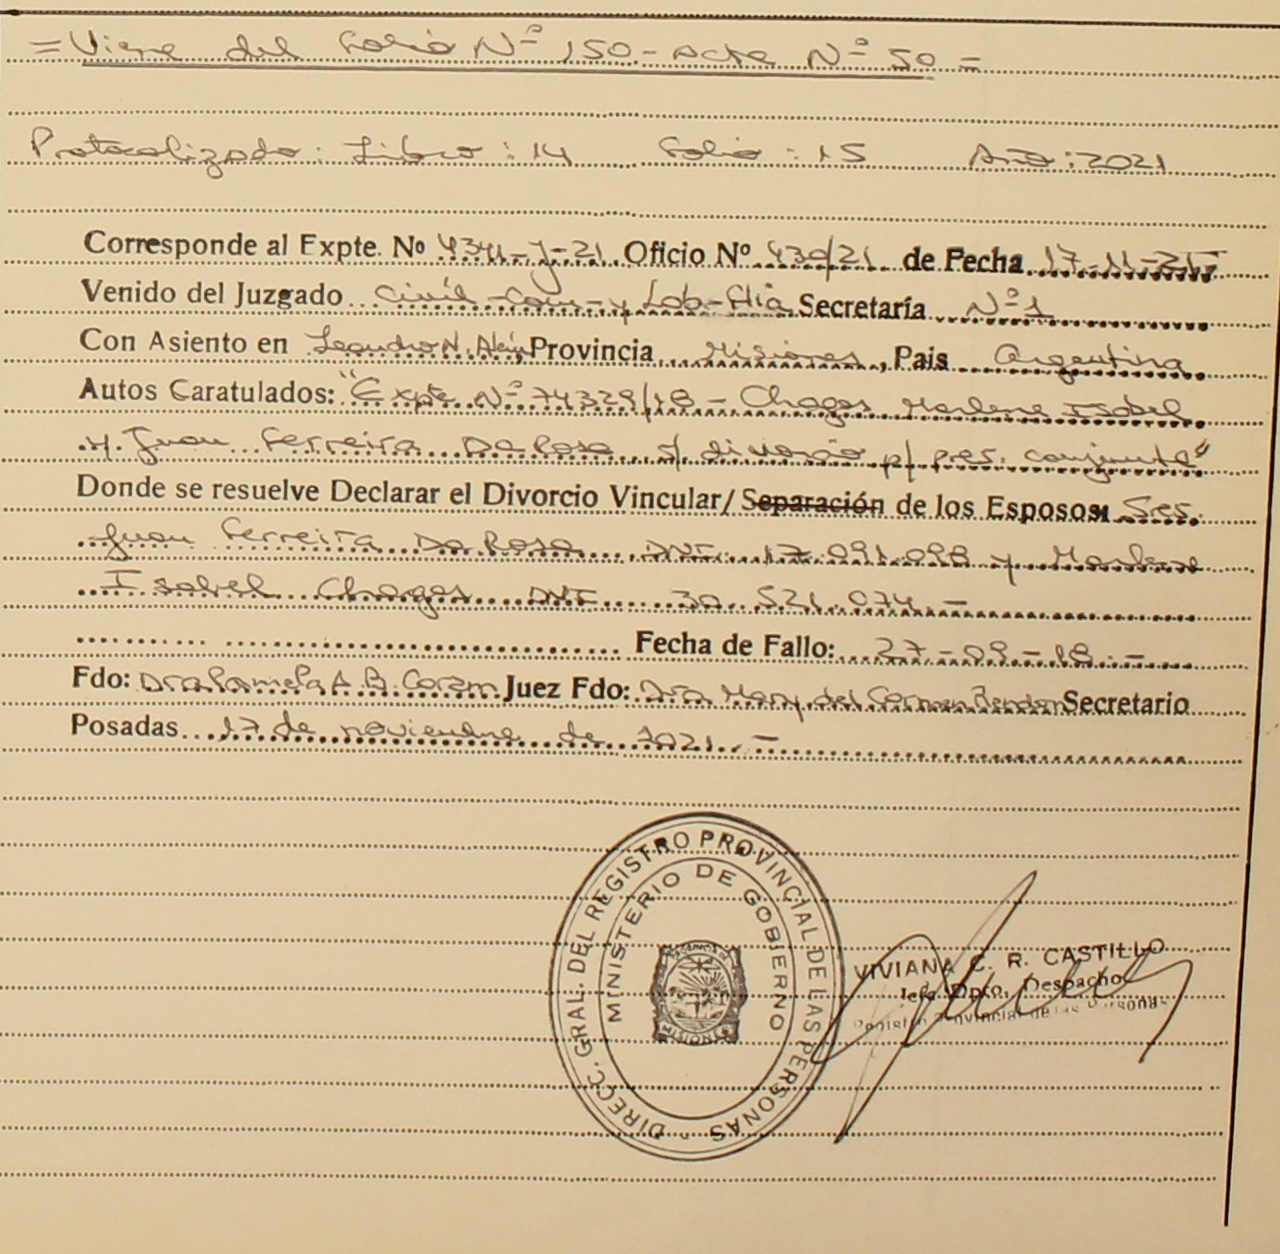 = Viene del Folio Nº 150 - Acta Nº 50 =
Protocolizado: Libro: 14 Folio: 15 Año: 2021
Corresponde al Expte. Nº 4341-J-21 Oficio Nº 430/21 de Fecha 17-11-21
Venido del Juzgado Civil-Com-y Lab-Flia Secretaría Nº 1
Con Asiento en Leandro N. Alem, Provincia Misiones, Pais Argentina
Autos Caratulados: "Expte Nº 74329/18 - Chagas Marlene Isabel
y Juan Ferreira Da Rosa s/ divorcio p/ pres. conjunta"
Donde se resuelve Declarar el Divorcio Vincular/ Separación de los Esposos: Sres.
Juan Ferreira Da Rosa DNI 17.091.098 y Marlene
Isabel Chagas DNI 30.521.074.-
Fecha de Fallo: 27-09-18.-
Fdo: Dra Pamela A. B. Juez Fdo: Dra. Mary del Carmen Rendon Secretario
Posadas 17 de noviembre de 2021.-
DIRECC. GRAL. DEL REGISTRO PROVINCIAL DE LAS PERSONAS
MINISTERIO DE GOBIERNO
MISIONES
VIVIANA C. R. CASTILLO
Jefe Dpto. Despacho
Registro Provincial de las Personas